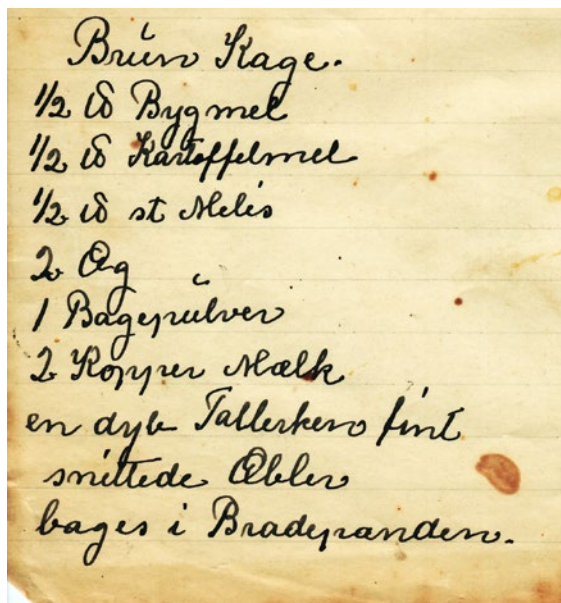 Brun Kage.
1/2 ℔ Bygmel
1/2 ℔ Kartoffelmel
1/2 ℔ st Melis
2 Æg
1 Bagepulver
2 Kopper Mælk
en dyb Tallerken fint
snittede Æbler
bages i Bradepanden.